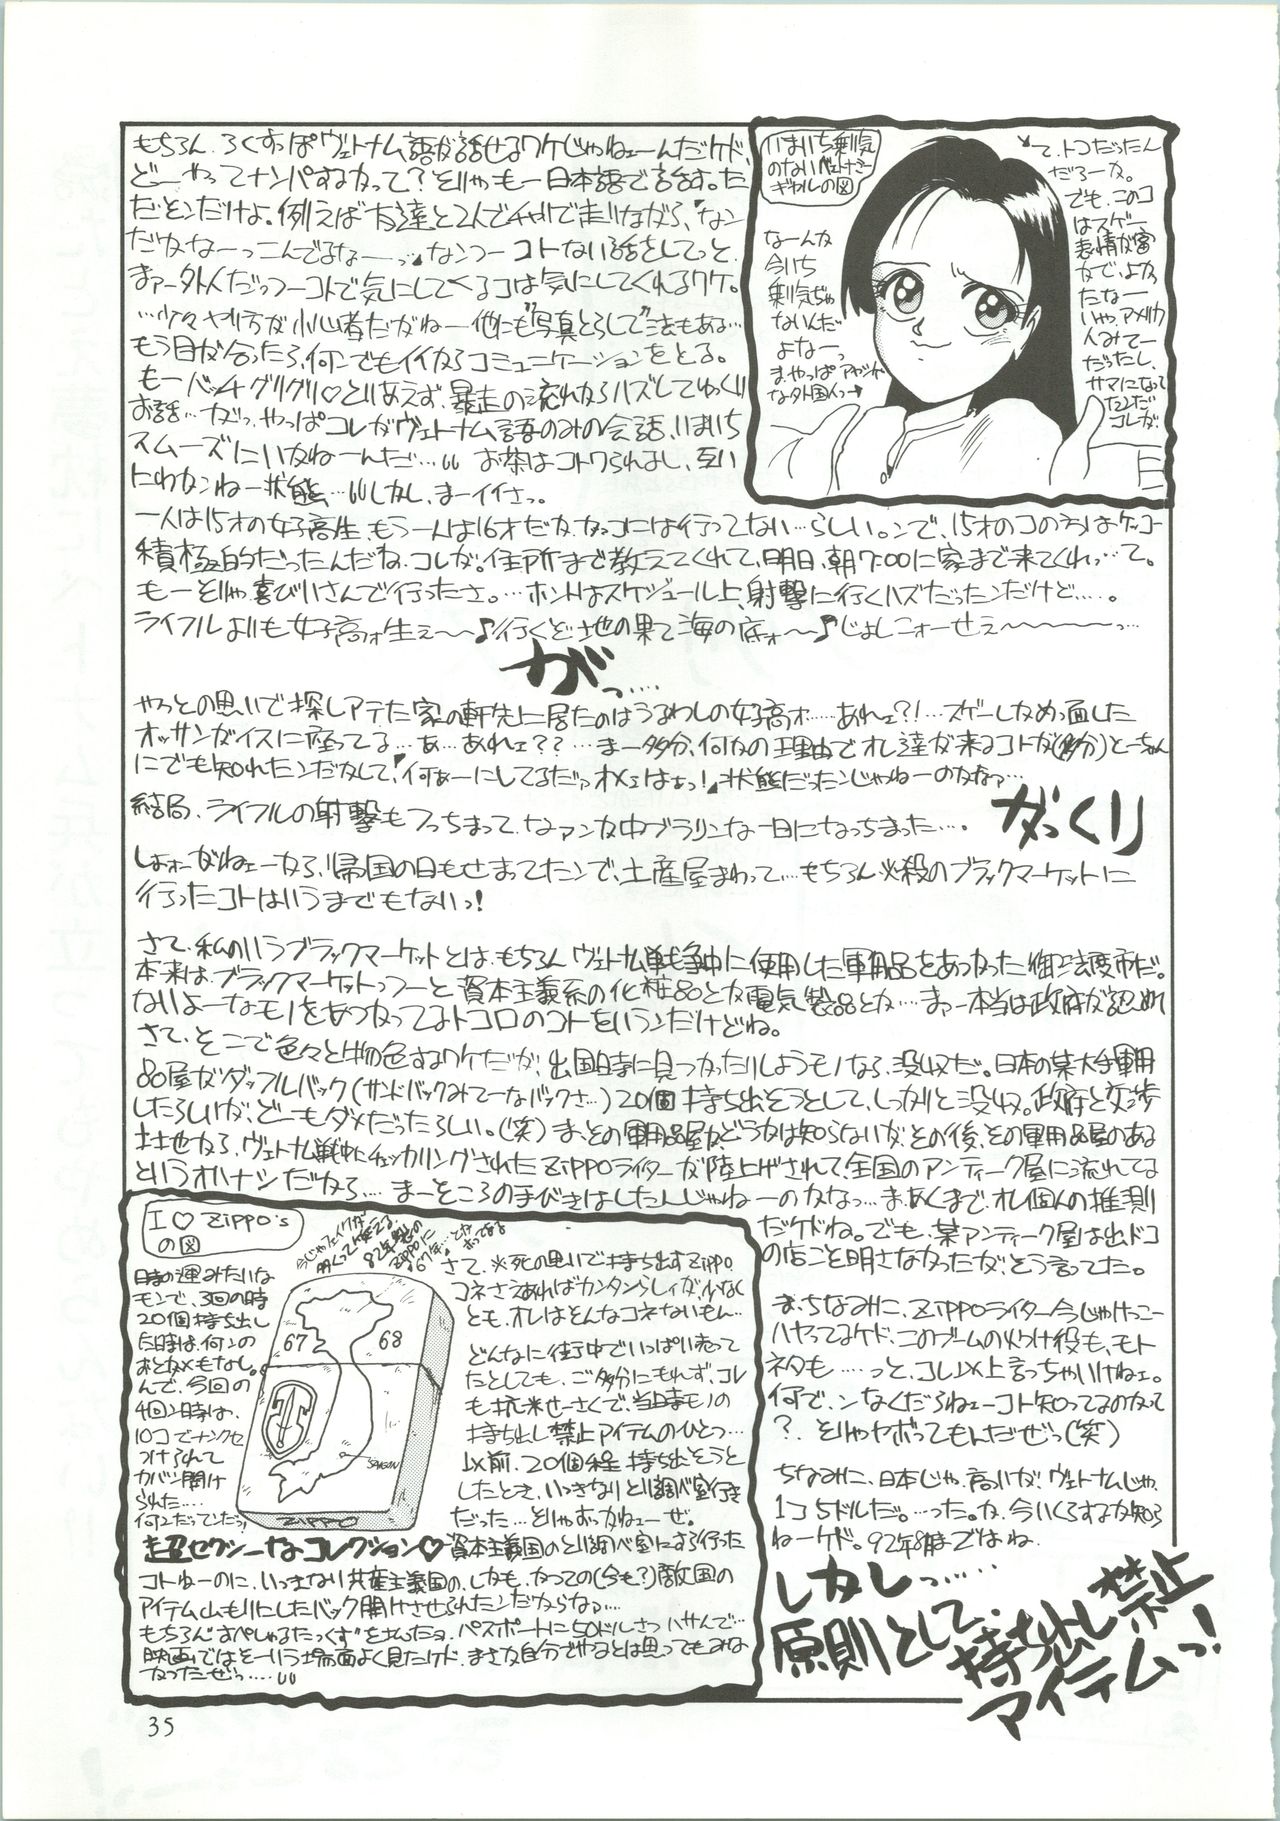 もちろん、ろくすっぽヴェトナム語が話せるワケじゃねェーんだケド、
どーやってナンパするかって？そりゃもー日本語で話す。た
だそンだけよ。例えば友達と2人でチャリで走りながら、「なン
だかなーっこんでるなーっ」なンつーコトない話をしてっと、
まァー外人だっつーコトで気にしてくるコは気にしてくれるワケ。
…少々やり方が小心者だがねー他にも"写真とらして"法もある…
もう目が合ったら、何ンでもイイからコミュニケーションをとる。
もーバッチグリグリ♡とりあえず、暴走の流れからハズしてゆっくり
お話…だっ、やっぱコレがヴェトナム語のみの会話、いまいち
スムーズにいかねーんだ… お茶はコトワられるし、互い
にわかンねー状態、…しかし、まーイイさっ。
一人は15才の女子高生、もう一人は16才だか、ガッコには行ってない…らしい。ンで、15才のコの方はケッコー
積極的だったんだな、コレが。住所まで教えてくれて、明日、朝7:00に家まで来てくれ…って。
もーそりゃ喜びいさんで行ったさ。…ホントはスケジュール上、射撃に行くハズだったンだけど…。
ライフルよりも女子高ォ生ェ〜〜♪行くぞ地の果て海の底ォ〜♪じょしこォーせェ〜〜〜〜っ…
がっ…
やっとの思いで探しアテた家の軒先に居たのはうるわしの女子高ォ……あれェ？！…スゲーしかめっ面した
オッサンがイスに座ってる…あ…あれェ？？…まー多分、何かの理由でオレ達が来るコトが(多分)とーちゃん
にでも知れたンだかして、「何ぁーにしてるだァオメェはよっ！」状態だったンじゃねーのかなァ…
がっくり
結局、ライフルの射撃もフっちまって、なァンか中ブラリンな一日になっちまった…。
しょォーがねェーから、帰国の日もせまってたンで、土産屋まわって…もちろん必殺のブラックマーケットに
行ったコトはいうまでもないっ！
さて、私のいうブラックマーケットとは、もちろんヴェトナム戦争中に使用した軍用品をあつかった御法度市だ。
本来は、ブラックマーケットっつーと資本主義系の化粧品とか電気製品とか…まァー本当は政府が認めれ
ないよーなモノをあつかってるトコロのコトをいうンだけどね。
さて、そこで色々と物色するワケだが、出国時に見つかったりしようモノなら、没収だ。日本の某大手軍用
品屋がダッフルバック(サンドバックみてーなバックさ…)20個持ち出そうとして、しっかりと没収。政府と交渉
したらしいが、どーもダメだったらしい。(笑)ま、その軍用品屋かどうかは知らないが、その後、その軍用品屋のある
土地から、ヴェトナム戦中にチェッカリングされたZIPPOライターが陸上げされて、全国のアンティーク屋に流れてる
というオハナシだから、…まーそこらの手びきはしたんじゃねーのかなっ…ま、あくまで、オレ個人の推測
だケドね。でも、某アンティーク屋は出ドコ
の店ごと明さなかったが、そう言ってた。
ま、ちなみに、ZIPPOライター今じゃけっこー
ハヤってるケド、このブームの火つけ役も、モト
ネタも……っと、コレ以上言っちゃいけねェ。
何で、ンなくだらねェーコト知ってるのかって
？そりゃヤボってもんだぜっ(笑)
ちなみに、日本じゃ高いが、ヴェトナムじゃ、
1コ5ドルだ。…った。か、今いくらするか知ら
ねーケド。92年8月まではね。
しかしっ……
原則として、
持ち出し禁止
アイテムっ！
いまいち乗気
のないベトナミー
ギャルの図
なーんか
今いち
乗気ぢゃ
ないんだ
よなーっ
まやっぱアヤシげ
な外国人っ→
て、トコだったん
だろーか。
でも、このコ
はスゲー
表情が富
かで、よか
ったなー
いや、アメリカ
人みてー
だったし、
サマになって
たンだ
コレが
I ♡ ZIPPO's
の図
時の運みたいな
モンで、3回の時
20個持ち出し
た時は、何ンの
おとがメもなし。
んで、今回の
4回ン時は、
10コでナンクセ
つけられて
カバン開け
られた…
何ンだってンだっ！
67
68
SAIGON
ZIPPO
超セクシーなコレクション♡
さて、※死の思いで持ち出すZIPPO。
コネさえあればカンタンらしィが、少なく
とも、オレはそんなコネないもん…
どんなに街中でいっぱい売って
たとしても、ご多分にもれず、コレ
も抗米せーさくで、当時モノの
持ち出し禁止アイテムのひとつ…
以前、20個程持ち出そうと
したとき、いっきなりとり調べ室行き
だった…とりゃおっかねェーぜ。
資本主義国のとり調べ室にさえ行った
コトねーのに、いっきなり共産主義国の、しかも、かつての(今も？)敵国の
アイテム山もりにしたバック開けさせられたンだからなァ…
もちろん"すぺしゃるたっくす"を払ったョ。パスポートに50ドルさつハサんで…
映画ではそーいう場面よく見たケド、まさか自分でやるとは思ってもみな
かったぜっ……
35